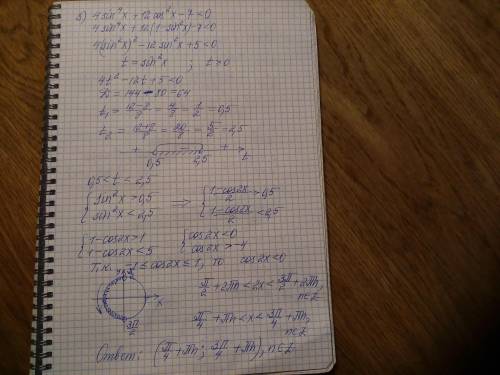 3) 4sin⁴x + 12cos²x - 7 < 0
4sin⁴x + 12(1 - sin²x) - 7 < 0
4(sin²x)² - 12sin²x + 5 < 0
t = sin²x ; t > 0
4t² - 12t + 5 < 0
D = 144 - 80 = 64
t₁ = (12-8)/8 = 4/8 = 1/2 = 0,5
t₂ = (12+8)/8 = 20/8 = 5/2 = 2,5
+ - +
0,5 2,5 t
0,5 < t < 2,5
{ sin²x > 0,5 ⇒ { (1-cos2x)/2 > 0,5
{ sin²x < 2,5 { (1-cos2x)/2 < 2,5
{ 1-cos2x > 1 { cos2x < 0
{ 1-cos2x < 5 { cos2x > -4
Т.к. -1 ≤ cos2x ≤ 1, то cos2x < 0
π/2
x
3π/2
π/2 + 2πn < 2x < 3π/2 + 2πn, n∈Z
π/4 + πn < x < 3π/4 + πn, n∈Z
Ответ: (π/4 + πn; 3π/4 + πn), n∈Z